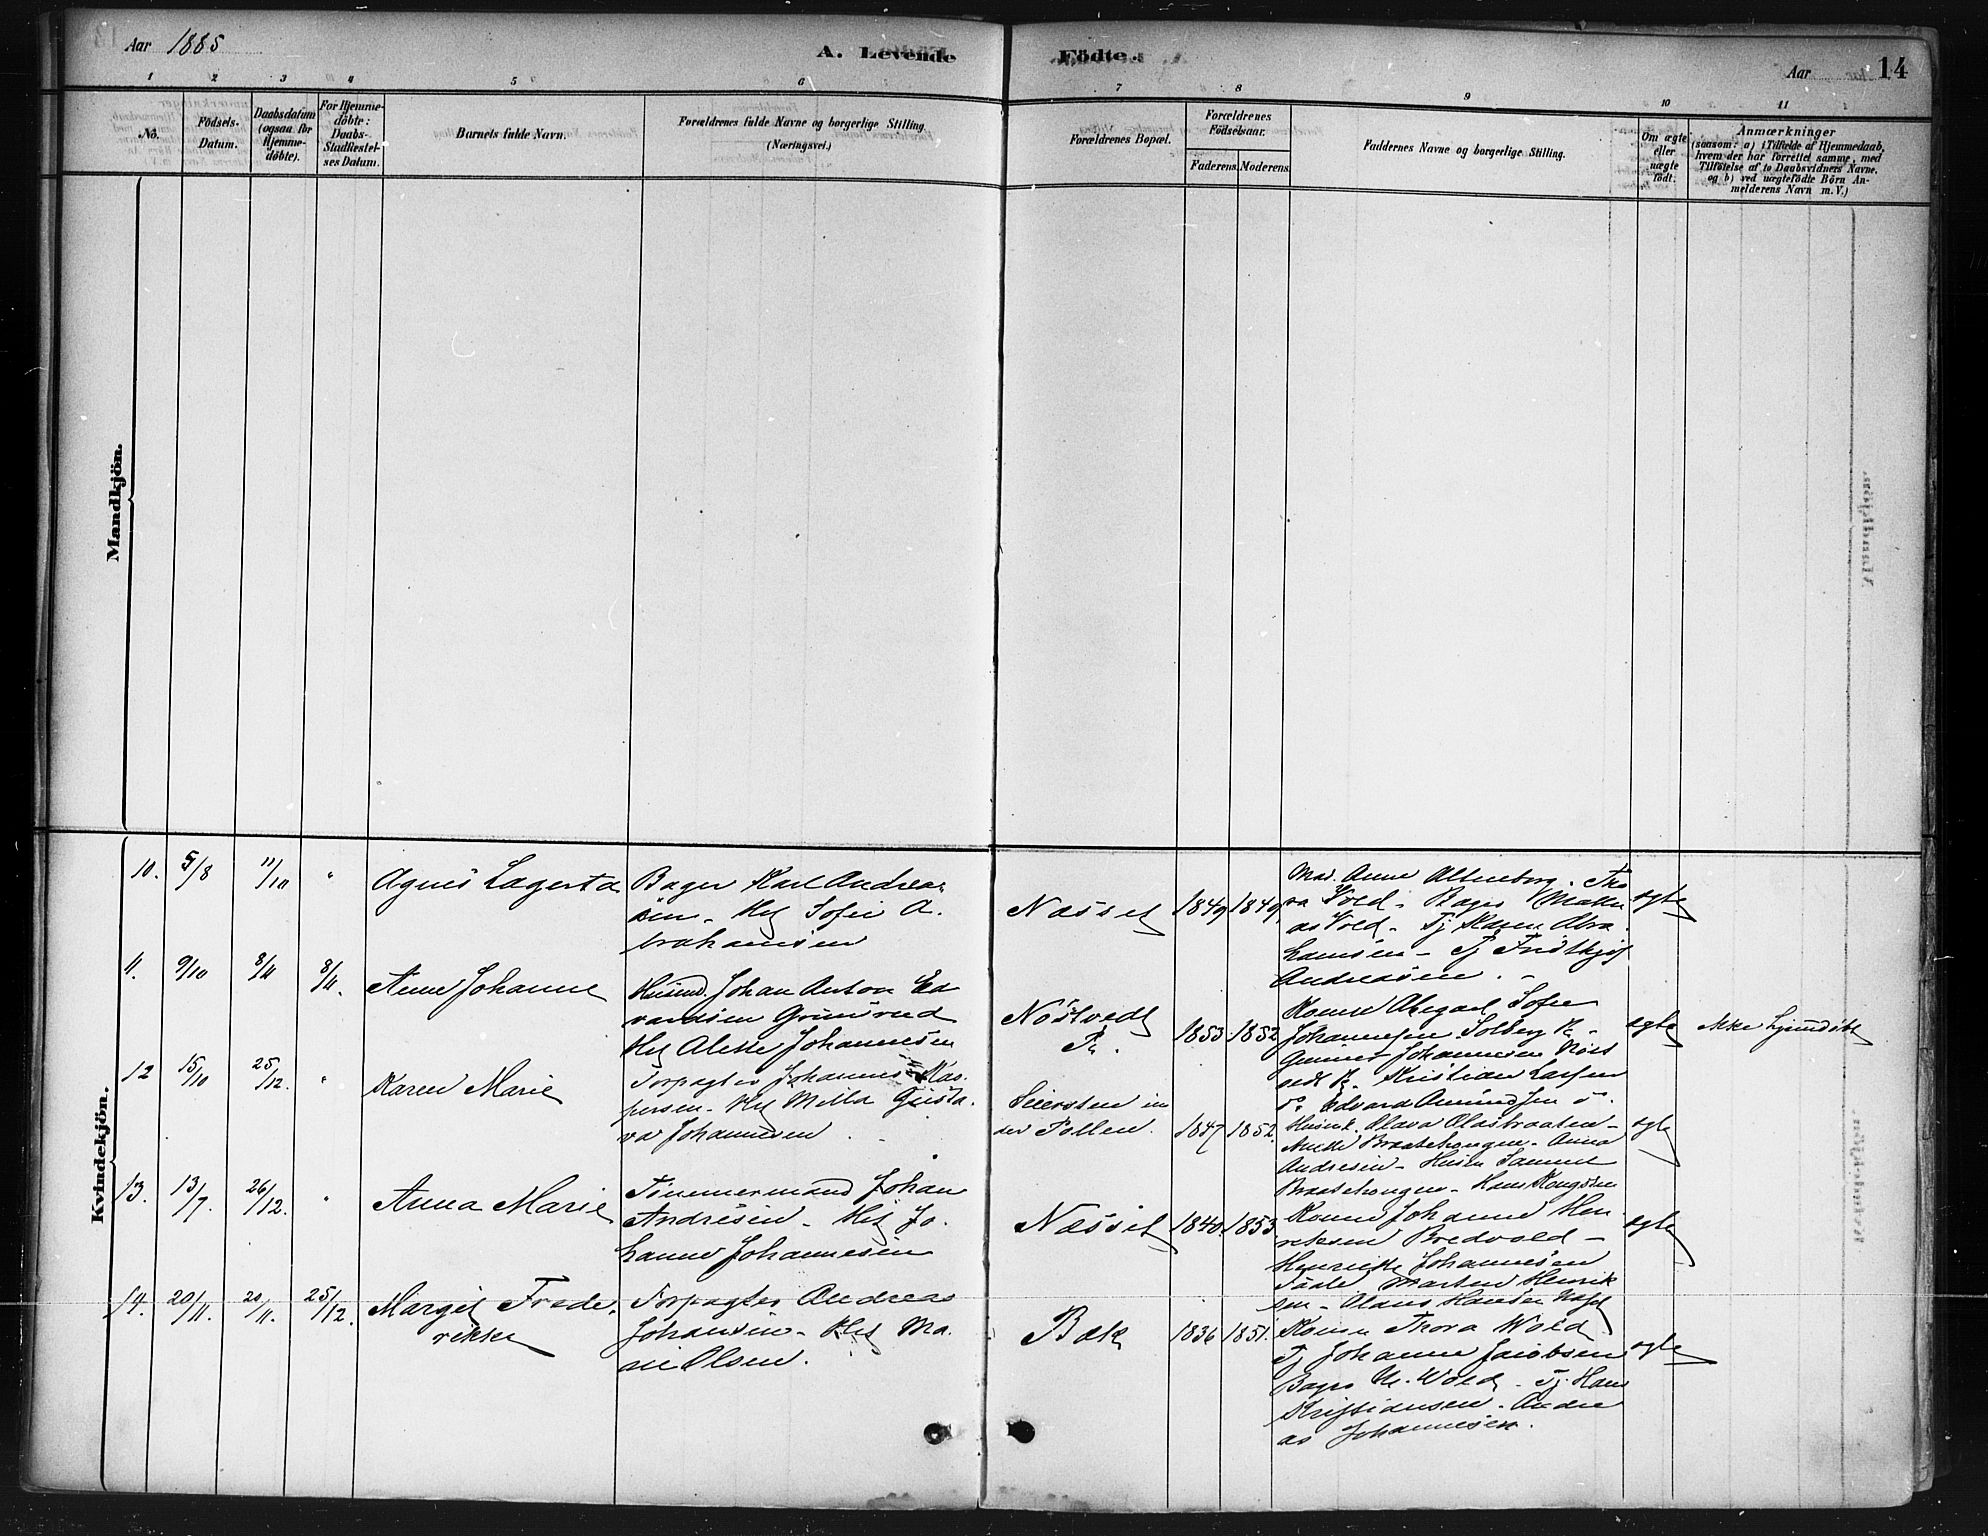 Aar 1885
A. Levende Födte.
Aar 14
1 2 3 4 5 6 7 8 9 10 11
No.
Födsels-Datum.
Daabsdatum (ogsaa for Hjemmedöbte).
For Hjemmedöbte: Daabs-Stadfæstelses Datum.
Barnets fulde Navn.
Forældrenes fulde Navne og borgerlige Stilling.
(Næringsvei.)
Forældrenes Bopæl.
Forældrenes Födselsaar.
Faderens. Moderens.
Faddernes Navne og borgerlige Stilling.
Om ægte eller uægte födt.
Anmærkninger
(saasom: a) i Tilfælde af Hjemmedaab,
hvem der har forrettet samme, med
Tilföielse af to Daabsvidners Navne,
og b) ved uægtefödte Börn An-
melderens Navn m. V.)
Mandkjön.
Kvindekjön.
10. 5/8 11/10 " Agnes Lagerta
Bager Karl Andrea
sen - Hst Sofie A.
brahamsen
Næsset 1849 1849
Mad. Anne Altenborg. Tho
ra Vold - Bager Mathi
as Vold - Tj Karen Abra
hamsen - Tj Fridthjof
Andreasen. -
egte
11. 9/10 8/11 8/11. Anne Johanne
Husmd. Johan Anton Ed
vardsen Grinsrud
Hst Alette Johannesen
Nöstvedt
E. 1853 1852
Konne Abegael Sofie
Johannesen Solberg E. -
Gunner Johannesen Nöst
vedt E. Kristian Larsen
do. Edvard Amundsen do.
egte
ikke hjemdöbt
12 15/10 25/12. " Karen Marie
Forpagter Johannes Kas
persen - Hst Milla Gusta.
va Johannesen
Seiersten in
der Pollen. 1847 1852.
Husmk. Olava Olasbraaten -
Braatehougen - Anna
Andresen - Husm Samuel
Braatehougen - Hans
egte
13. 13/7. 26/12. " Anna Marie
Tömmermand Johan
Andresen - Hst Jo.
hanne Johannesen
Næsset 1840. 1853.
Konne Johanne Hen
riksen Bredvold -
Henriette Johannesen
Marten Henrik
sen - Olaus Hansen
egte
14. 20/11. 20/11. 25/12. Margit Frede.
rikke
Forpagter Andreas
Johansen - Hst Ma.
rie Olsen.
Bæk 1836 1851.
Konne Thora Wold
Tj Johanne Jacobsen
Bager M. Wold - Tj. Hans
Kristiansen - Andre
as Johannesen.
egte